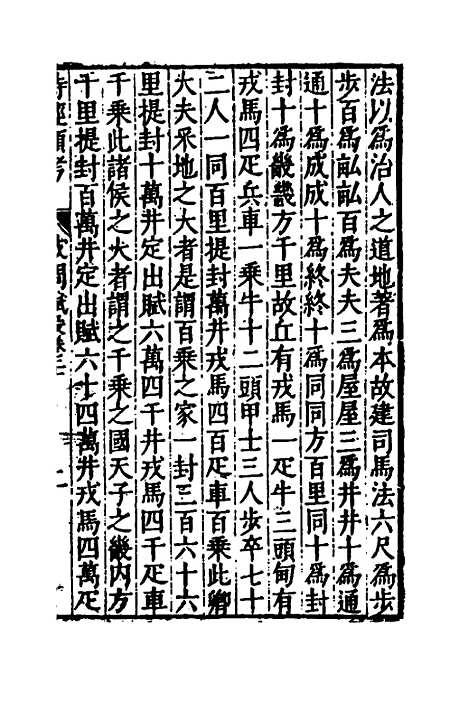 法以爲治人之道地著爲本故建司馬法六尺爲步
步百爲畝畝百爲夫夫三爲屋屋三爲井井十爲通
通十爲成成十爲終終十爲同同方百里同十爲封
封十爲畿畿方千里故丘有戎馬一疋牛三頭甸有
戎馬四疋兵車一乗牛十二頭甲士三人歩卒七十
二人一同百里提封萬井戎馬四百疋車百乗此卿
大夫采地之大者是謂百乗之家一封三百六十六
里提封十萬井定出賦六萬四千井戎馬四千疋車
千乗此諸侯之大者謂之千乗之國天子之畿内方
千里提封百萬井定出賦六十四萬井戎馬四萬疋
詩經類考